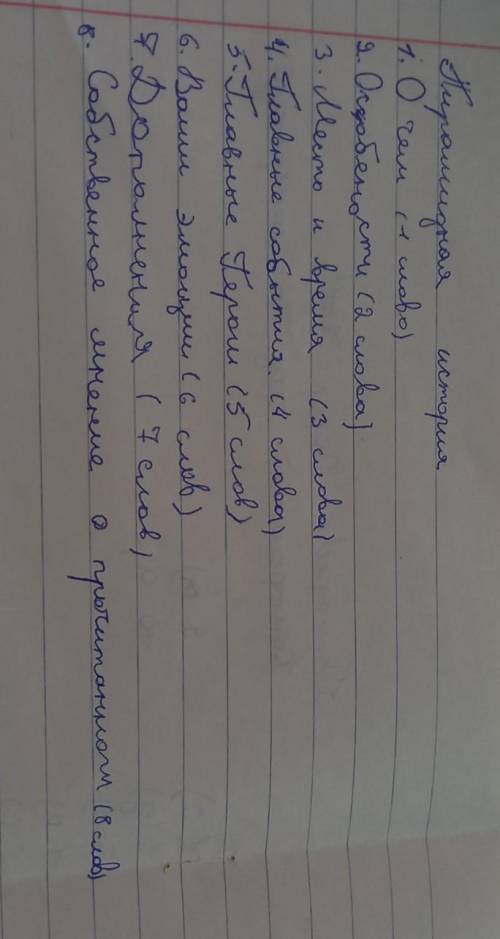 Пирамидная история
1. О чем (1 слово)
2. Особенности (2 слова)
3. Место и время (3 слова)
4. Главные события (4 слова)
5. Главные Герои (5 слов)
6. Ваши эмоции (6 слов)
7. Дополнения (7 слов)
8. Собственное мнение о прочитанном (8 слов)